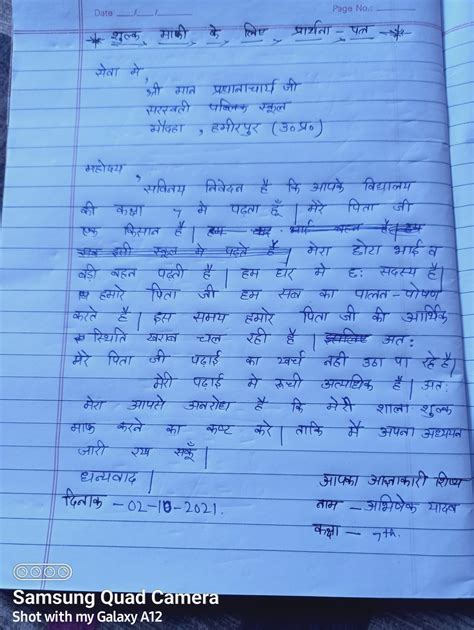 Date __/__/__ Page No.:
* शुल्क माफी के लिए प्रार्थना-पत्र *
सेवा में,
श्री मान प्रधानाचार्य जी
सरस्वती पब्लिक स्कूल
मौदहा, हमीरपुर (उ०प्र०)
महोदय,
सविनय निवेदन है कि आपके विद्यालय
की कक्षा 7 मे पढ़ता हूँ | मेरे पिता जी
एक किसान है | हम भाई बहन है
इसी स्कूल मे पढ़ते है | मेरा छोटा भाई व
बड़ी बहन पढ़ती है | हम घर मे छः सदस्य है |
हमारे पिता जी हम सब का पालन-पोषण
करते है | इस समय हमारे पिता जी की आर्थिक
स्थिति खराब चल रही है | इसलिए अतः
मेरे पिता जी पढाई का खर्च नही उठा पा रहे है |
मेरी पढ़ाई मे रूची अत्यधिक है | अतः
मेरा आपसे अनरोध है कि मेरी शाला शुल्क
माफ़ करने का कष्ट करे | ताकि मै अपना अध्ययन
जारी रख सकूँ |
धन्यवाद | आपका आज्ञाकारी शिष्य
दिनाक - 02-10-2021. नाम - अभिषेक यादव
कक्षा - 7th.
Samsung Quad Camera
Shot with my Galaxy A12